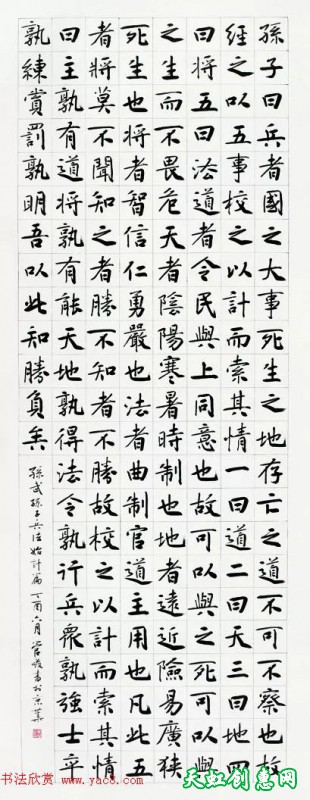 孫子曰兵者國之大事死生之地存亡之道不可不察也故
經之以五事校之以計而索其情一曰道二曰天三曰地四
曰將五曰法道者令民與上同意也故可以與之死可以與
之生而不畏危天者陰陽寒暑時制也地者遠近險易廣狹
死生也將者智信仁勇嚴也法者曲制官道主用也凡此五
者將莫不聞知之者勝不知者不勝故校之以計而索其情
曰主孰有道將孰有能天地孰得法令孰行兵衆孰強士卒
孰練賞罰孰明吾以此知勝負矣
孫武孫子兵法始計篇 丁酉六月 管峻書於京華
书法欣赏 www.yac8.com
天虹创意网